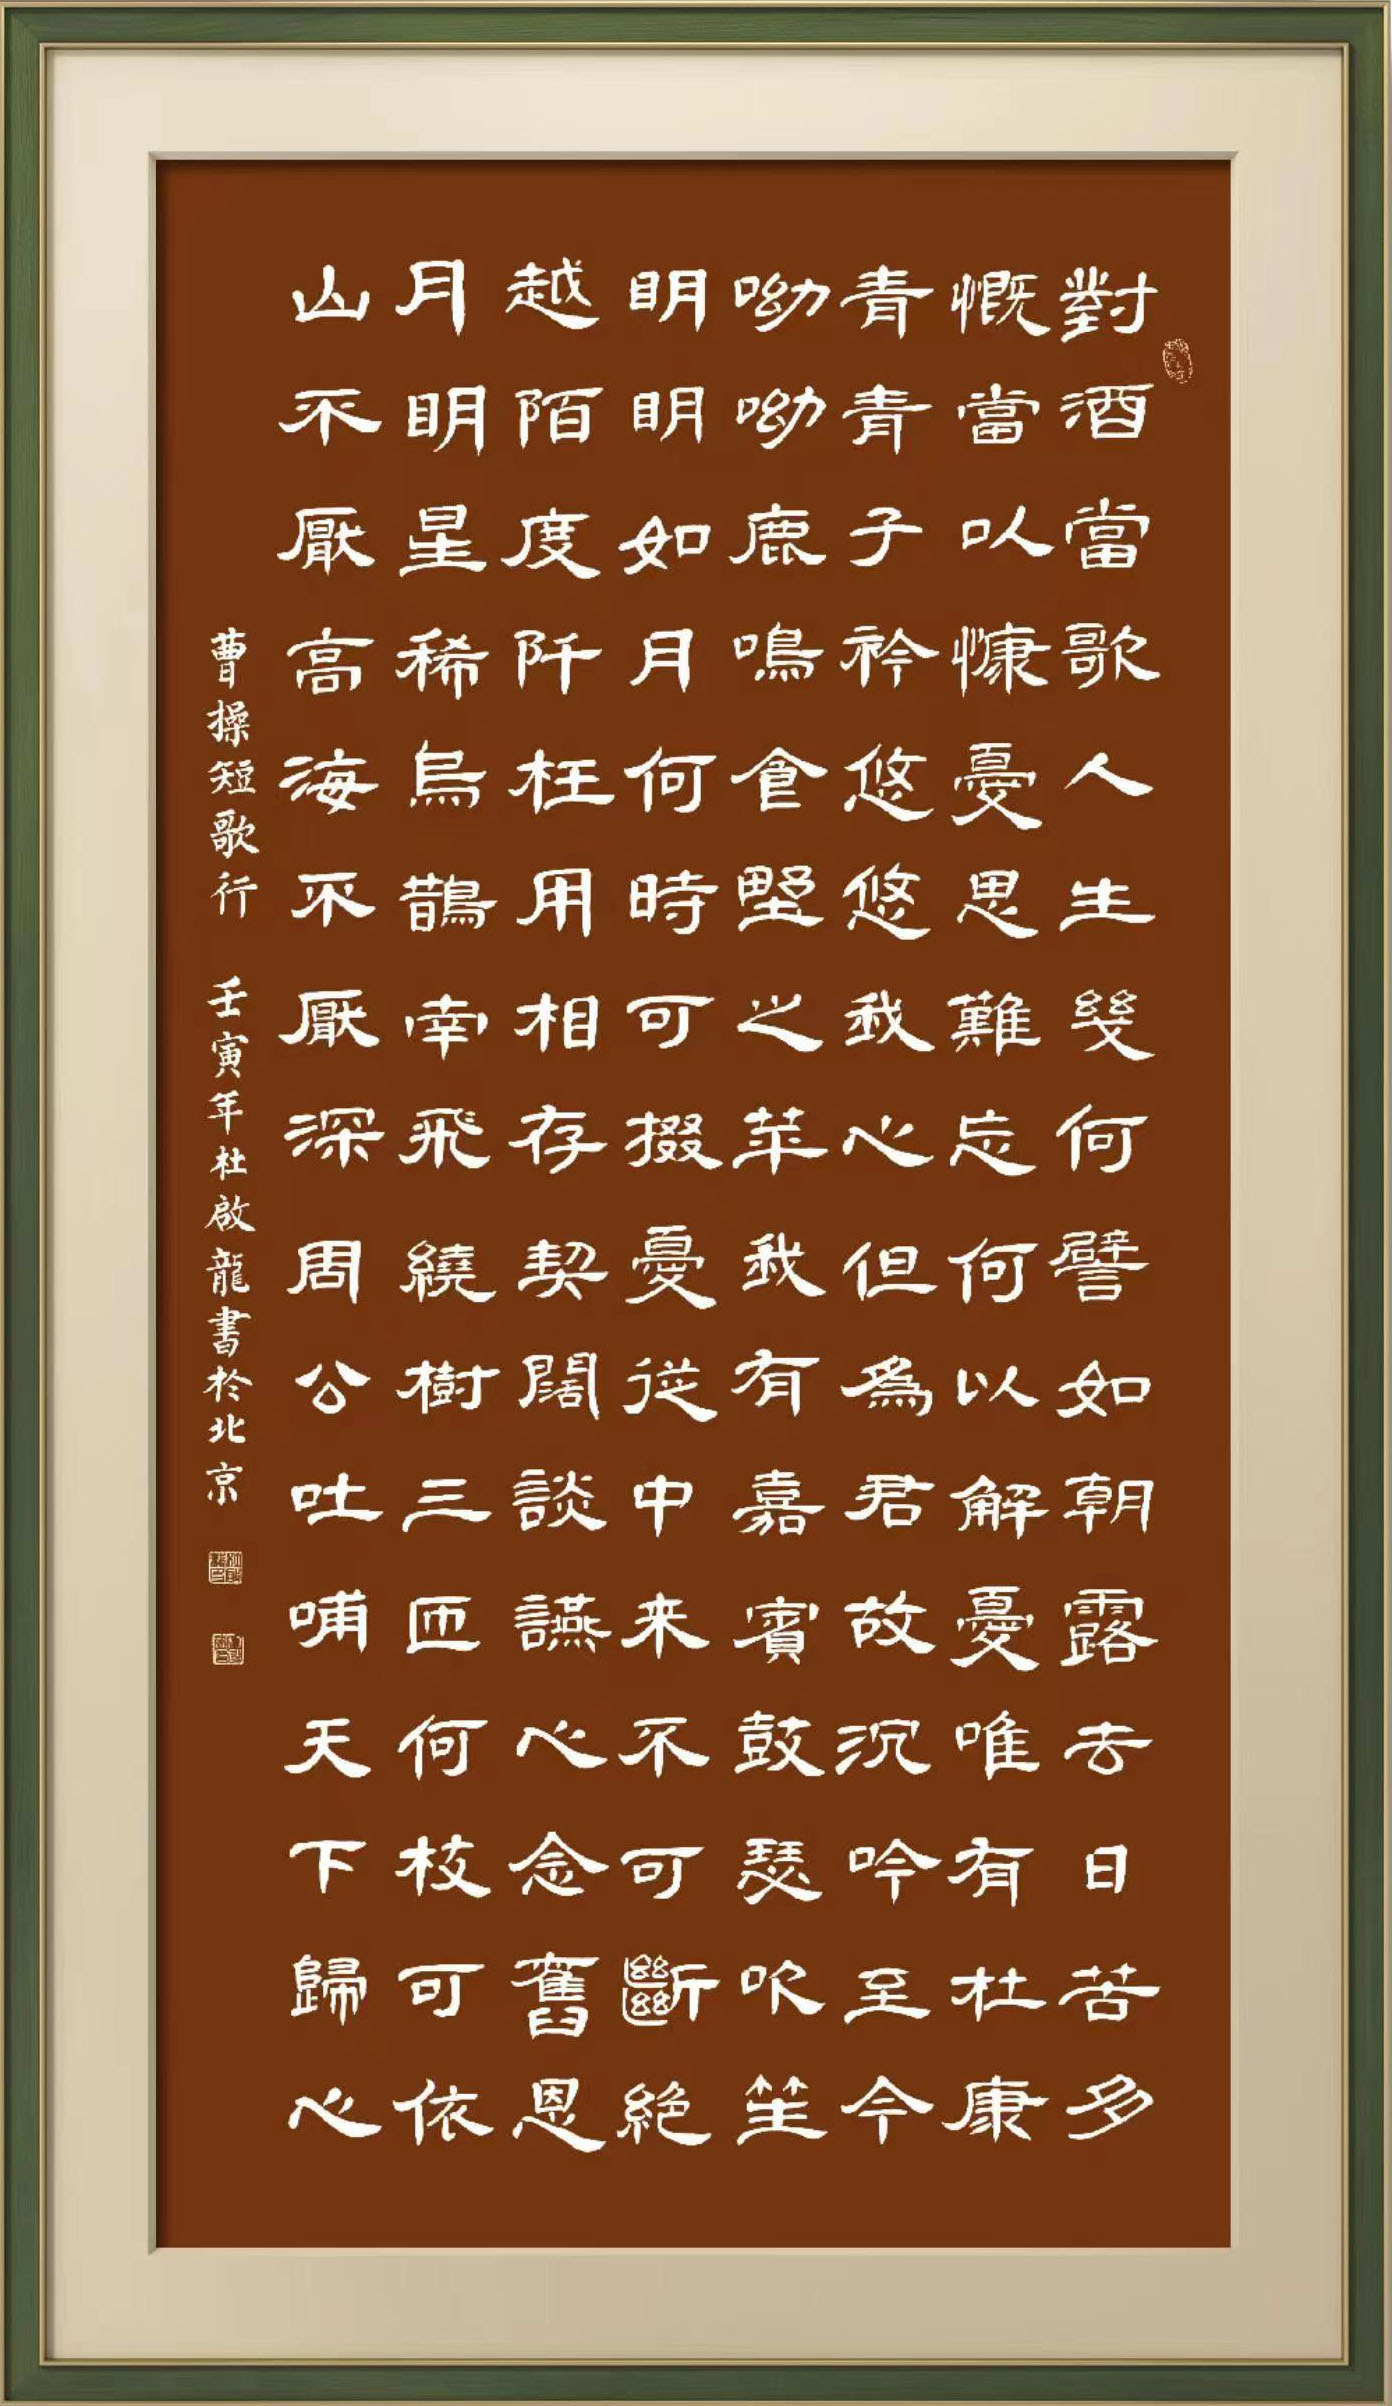 對酒當歌人生幾何譬如朝露去日苦多
慨當以慷憂思難忘何以解憂唯有杜康
青青子衿悠悠我心但為君故沉吟至今
呦呦鹿鳴食野之苹我有嘉賓鼓瑟吹笙
明明如月何時可掇憂從中来不可斷絕
越陌度阡枉用相存契闊談讌心念舊恩
月明星稀烏鵲南飛繞樹三匝何枝可依
山不厭高海不厭深周公吐哺天下歸心
曹操短歌行 壬寅年杜啟龍書於北京